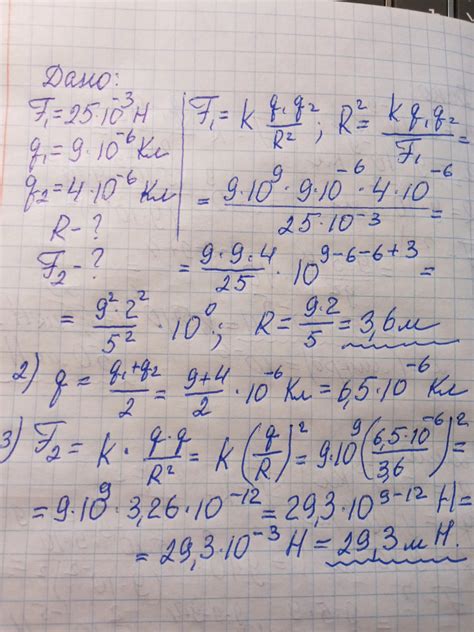 Дано:
F₁=25·10⁻³ Н
q₁=9·10⁻⁶ Кл
q₂=4·10⁻⁶ Кл
R-?
F₂-?
F₁= K q₁q₂/R² ; R²= K q₁q₂/F₁ =
= 9·10⁹·9·10⁻⁶·4·10⁻⁶/25·10⁻³ =
= 9·9·4/25 · 10⁹⁻⁶⁻⁶⁺³ =
= 9²·2²/5² · 10⁰ ; R= 9·2/5 = 3,6 м
2) q = q₁+q₂/2 = 9+4/2 · 10⁻⁶ Кл = 6,5·10⁻⁶ Кл
3) F₂= K · q·q/R² = K(q/R)² = 9·10⁹(6,5·10⁻⁶/3,6)² =
= 9·10⁹·3,26·10⁻¹² = 29,3·10⁹⁻¹² Н=
= 29,3·10⁻³ Н = 29,3 мН.